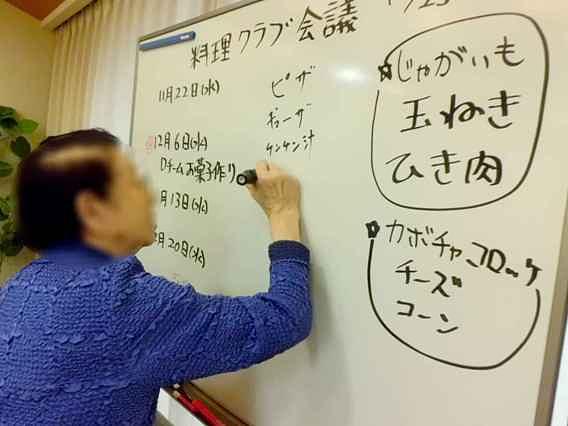 料理クラブ会議
11月22日(水)
12月6日(水)
Dチームお菓子作り
月13日(水)
月20日(水)
ピザ
ギョーザ
ケンケン汁
じゃがいも
玉ねぎ
ひき肉
カボチャコロッケ
チーズ
コーン